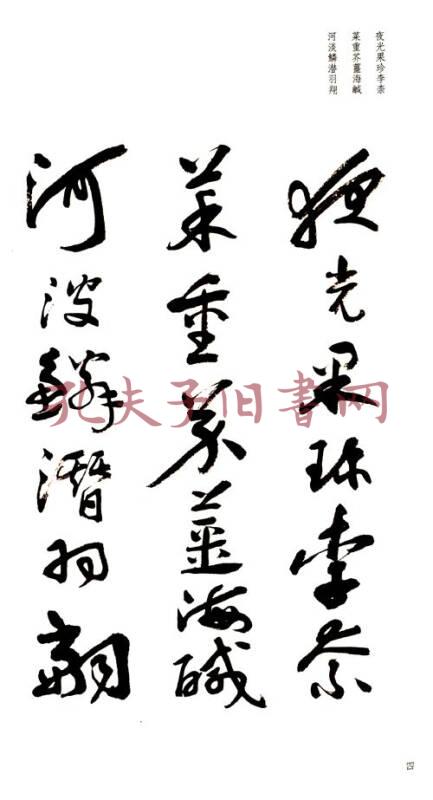 夜光果珍李柰
菜重芥薑海鹹
河淡鱗潜羽翔
夜光果珍李柰
菜重芥薑海醎
河淡鱗潛羽翔
孔夫子旧书网
四